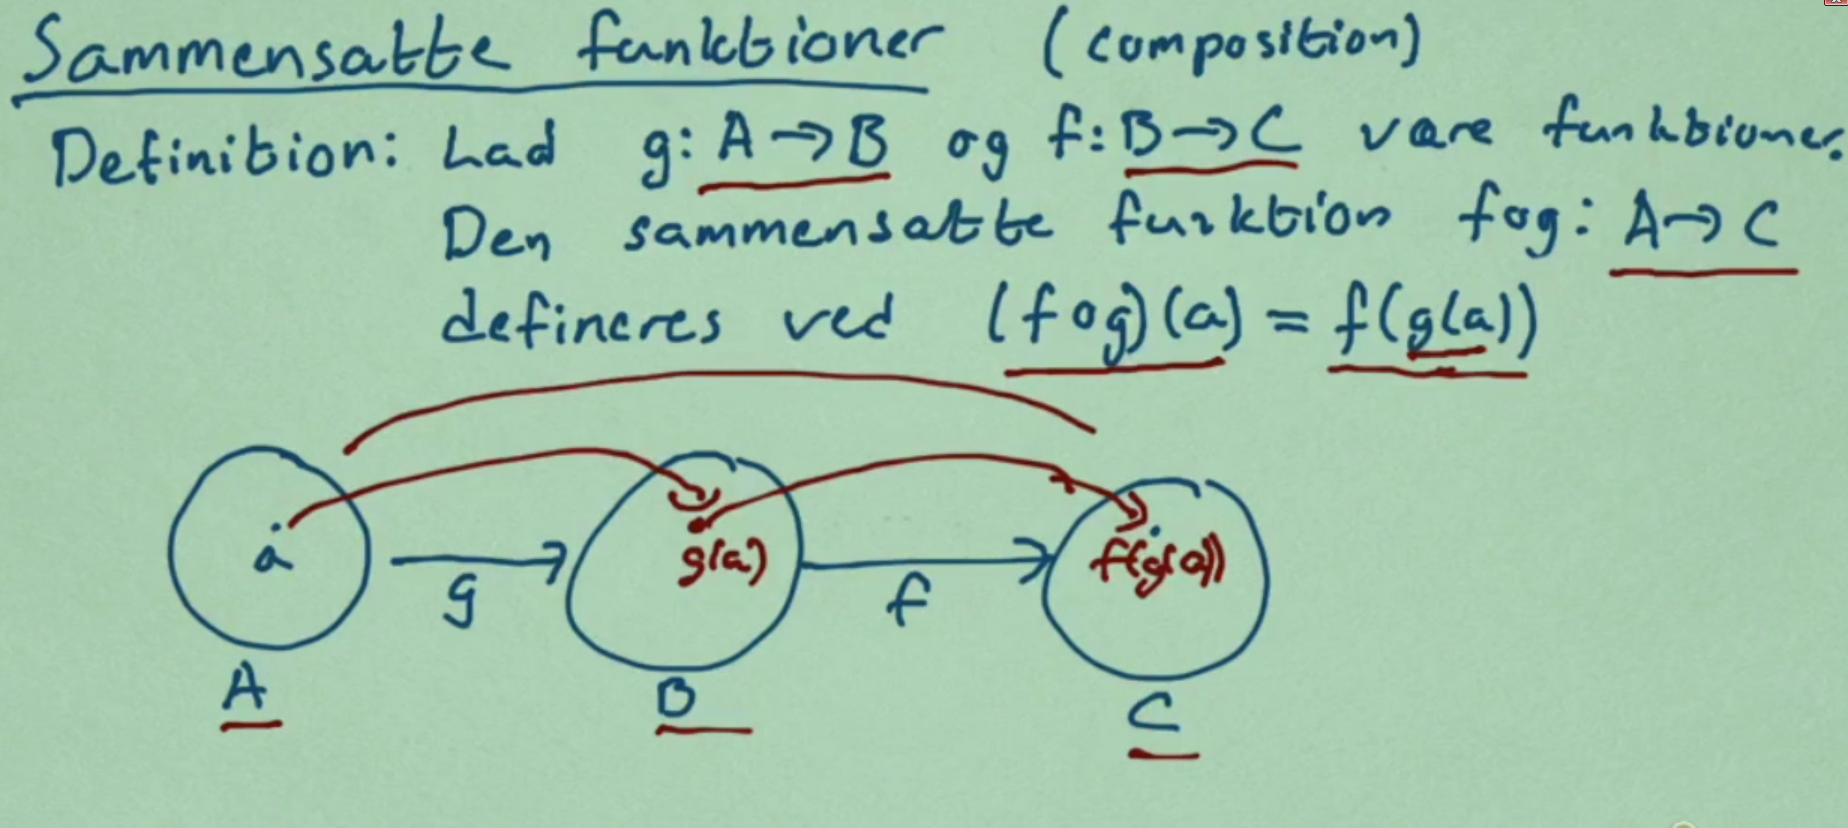 Sammensatte funktioner (composition)
Definition: Lad g: A → B og f: B → C være funktioner.
Den sammensatte funktion fog: A → C
defineres ved (fog)(a) = f(g(a))
a g(a) f(g(a))
g f
A B C